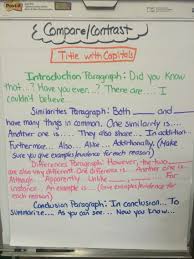 Post-it
Compare/Contrast
Title with Capitals
Introduction Paragraph: Did you know
that...? Have you ever...? There are... I
couldn't believe...
Similarities Paragraph: Both ___ and ___
have many things in common. One similarity is...
Another one is... They also share... In addition...
Furthermore... Also... Alike... Additionally... (Make
sure you give examples/evidence for each reason)
Differences Paragraph: However, the two
are also very different. One difference is... Another one is...
Although... Apparently... Unlike ___, ___... For
instance... An example is... (Give examples/evidence for
each reason)
Conclusion Paragraph: In conclusion... To
summarize... As you can see... Now you know...